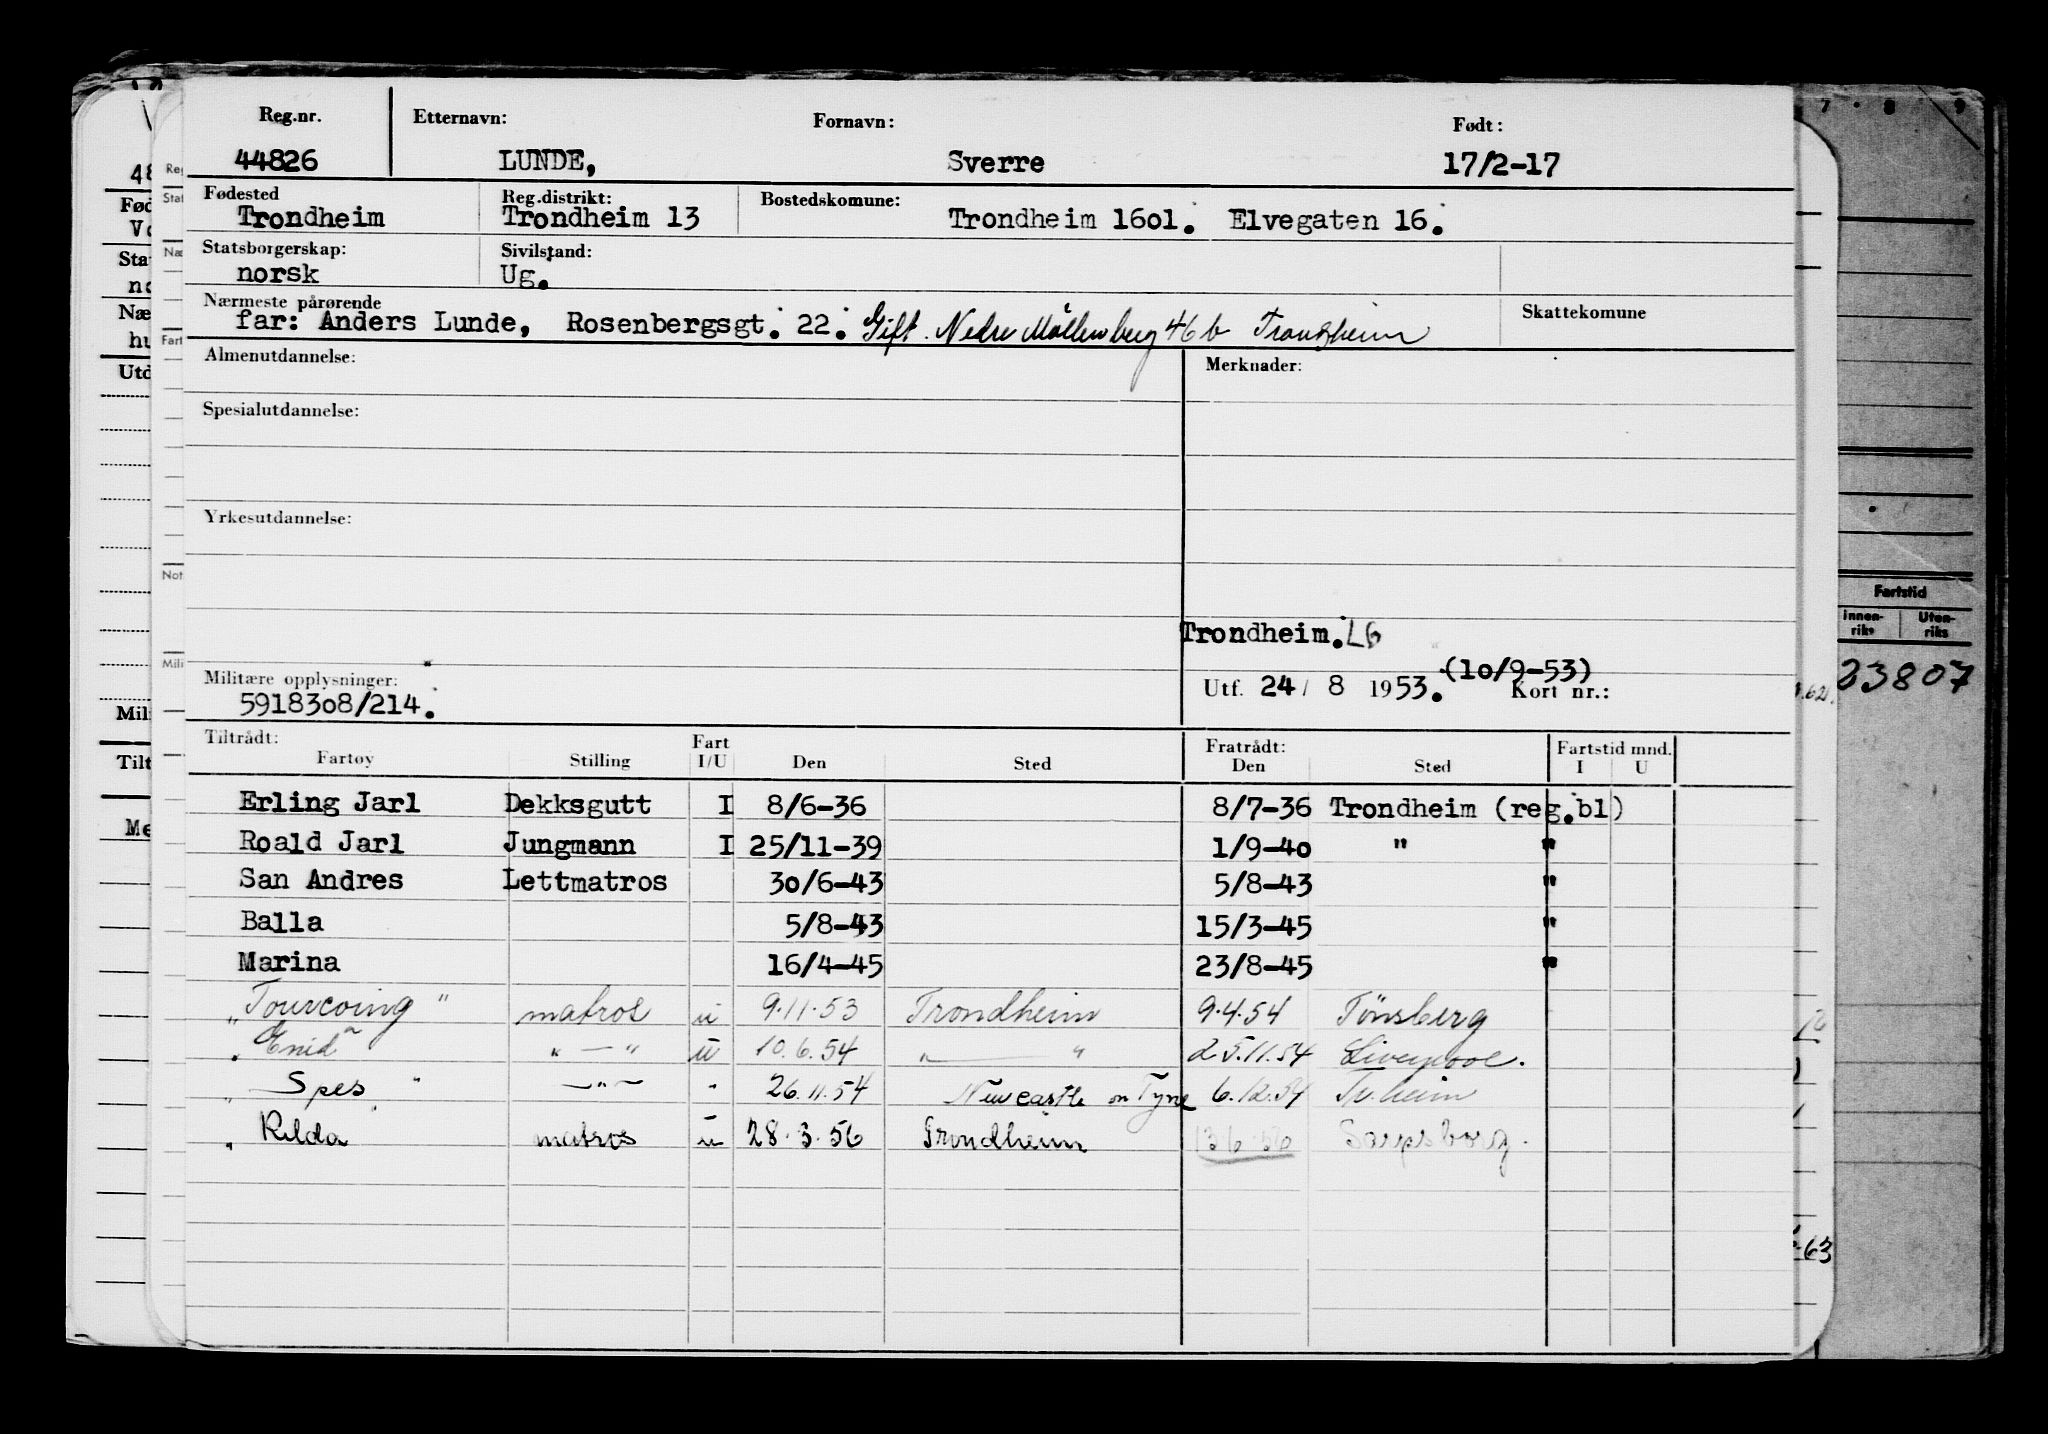 Reg.nr. Etternavn: Fornavn: Født:
44826 LUNDE, Sverre 17/2-17
Fødested Reg.distrikt: Bostedskomune:
Trondheim Trondheim 13 Trondheim 1601. Elvegaten 16.
Statsborgerskap: Sivilstand:
norsk Ug.
Nærmeste pårørende Skattekomune
far: Anders Lunde, Rosenbergsgt. 22. Gift. Nedre Möllenberg 46 b Trondheim
Almenutdannelse: Merknader:
Spesialutdannelse:
Yrkesutdannelse:
Trondheim. L6
Militære opplysninger: (10/9-53)
5918308/214. Utf. 24/ 8 1953. Kort nr.:
Tiltrådt: Fart Fratrådt: Fartstid mnd.
Fartøy Stilling I/U Den Sted Den Sted I U
Erling Jarl Dekksgutt I 8/6-36 8/7-36 Trondheim (reg.bl)
Roald Jarl Jungmann I 25/11-39 1/9-40 " "
San Andres Lettmatros 30/6-43 5/8-43 "
Balla 5/8-43 15/3-45 "
Marina 16/4-45 23/8-45 "
„Tourcoing" matros u 9.11.53 Trondheim 9.4.54 Tönsberg
„Enid" „ — " u 10.6.54 „ — " 25.11.54 Liverpool.
„Spes" — " — " 26.11.54 Newcastle on Tyne 6.12.54 Tr.heim
„Rilda" matros u 28.3.56 Trondheim Sarpsborg.
7 8 9
Fartstid
Innen-riks Uten-riks
23807
Reg
Stat
Næ
Fart
Not
Mili
Fød
Sta
Næ
Utd
Mil
Tilt
Me